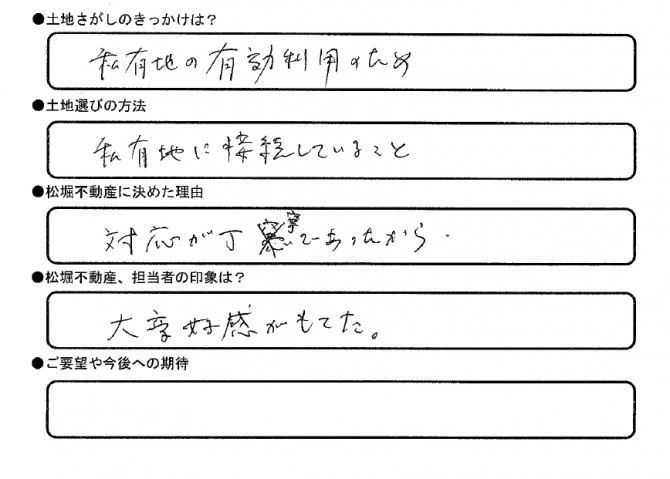 ●土地さがしのきっかけは？
私有地の有効利用のため
●土地選びの方法
私有地に接続していること
●松堀不動産に決めた理由
対応が丁寧であったから.
●松堀不動産、担当者の印象は？
大変好感がもてた。
●ご要望や今後への期待